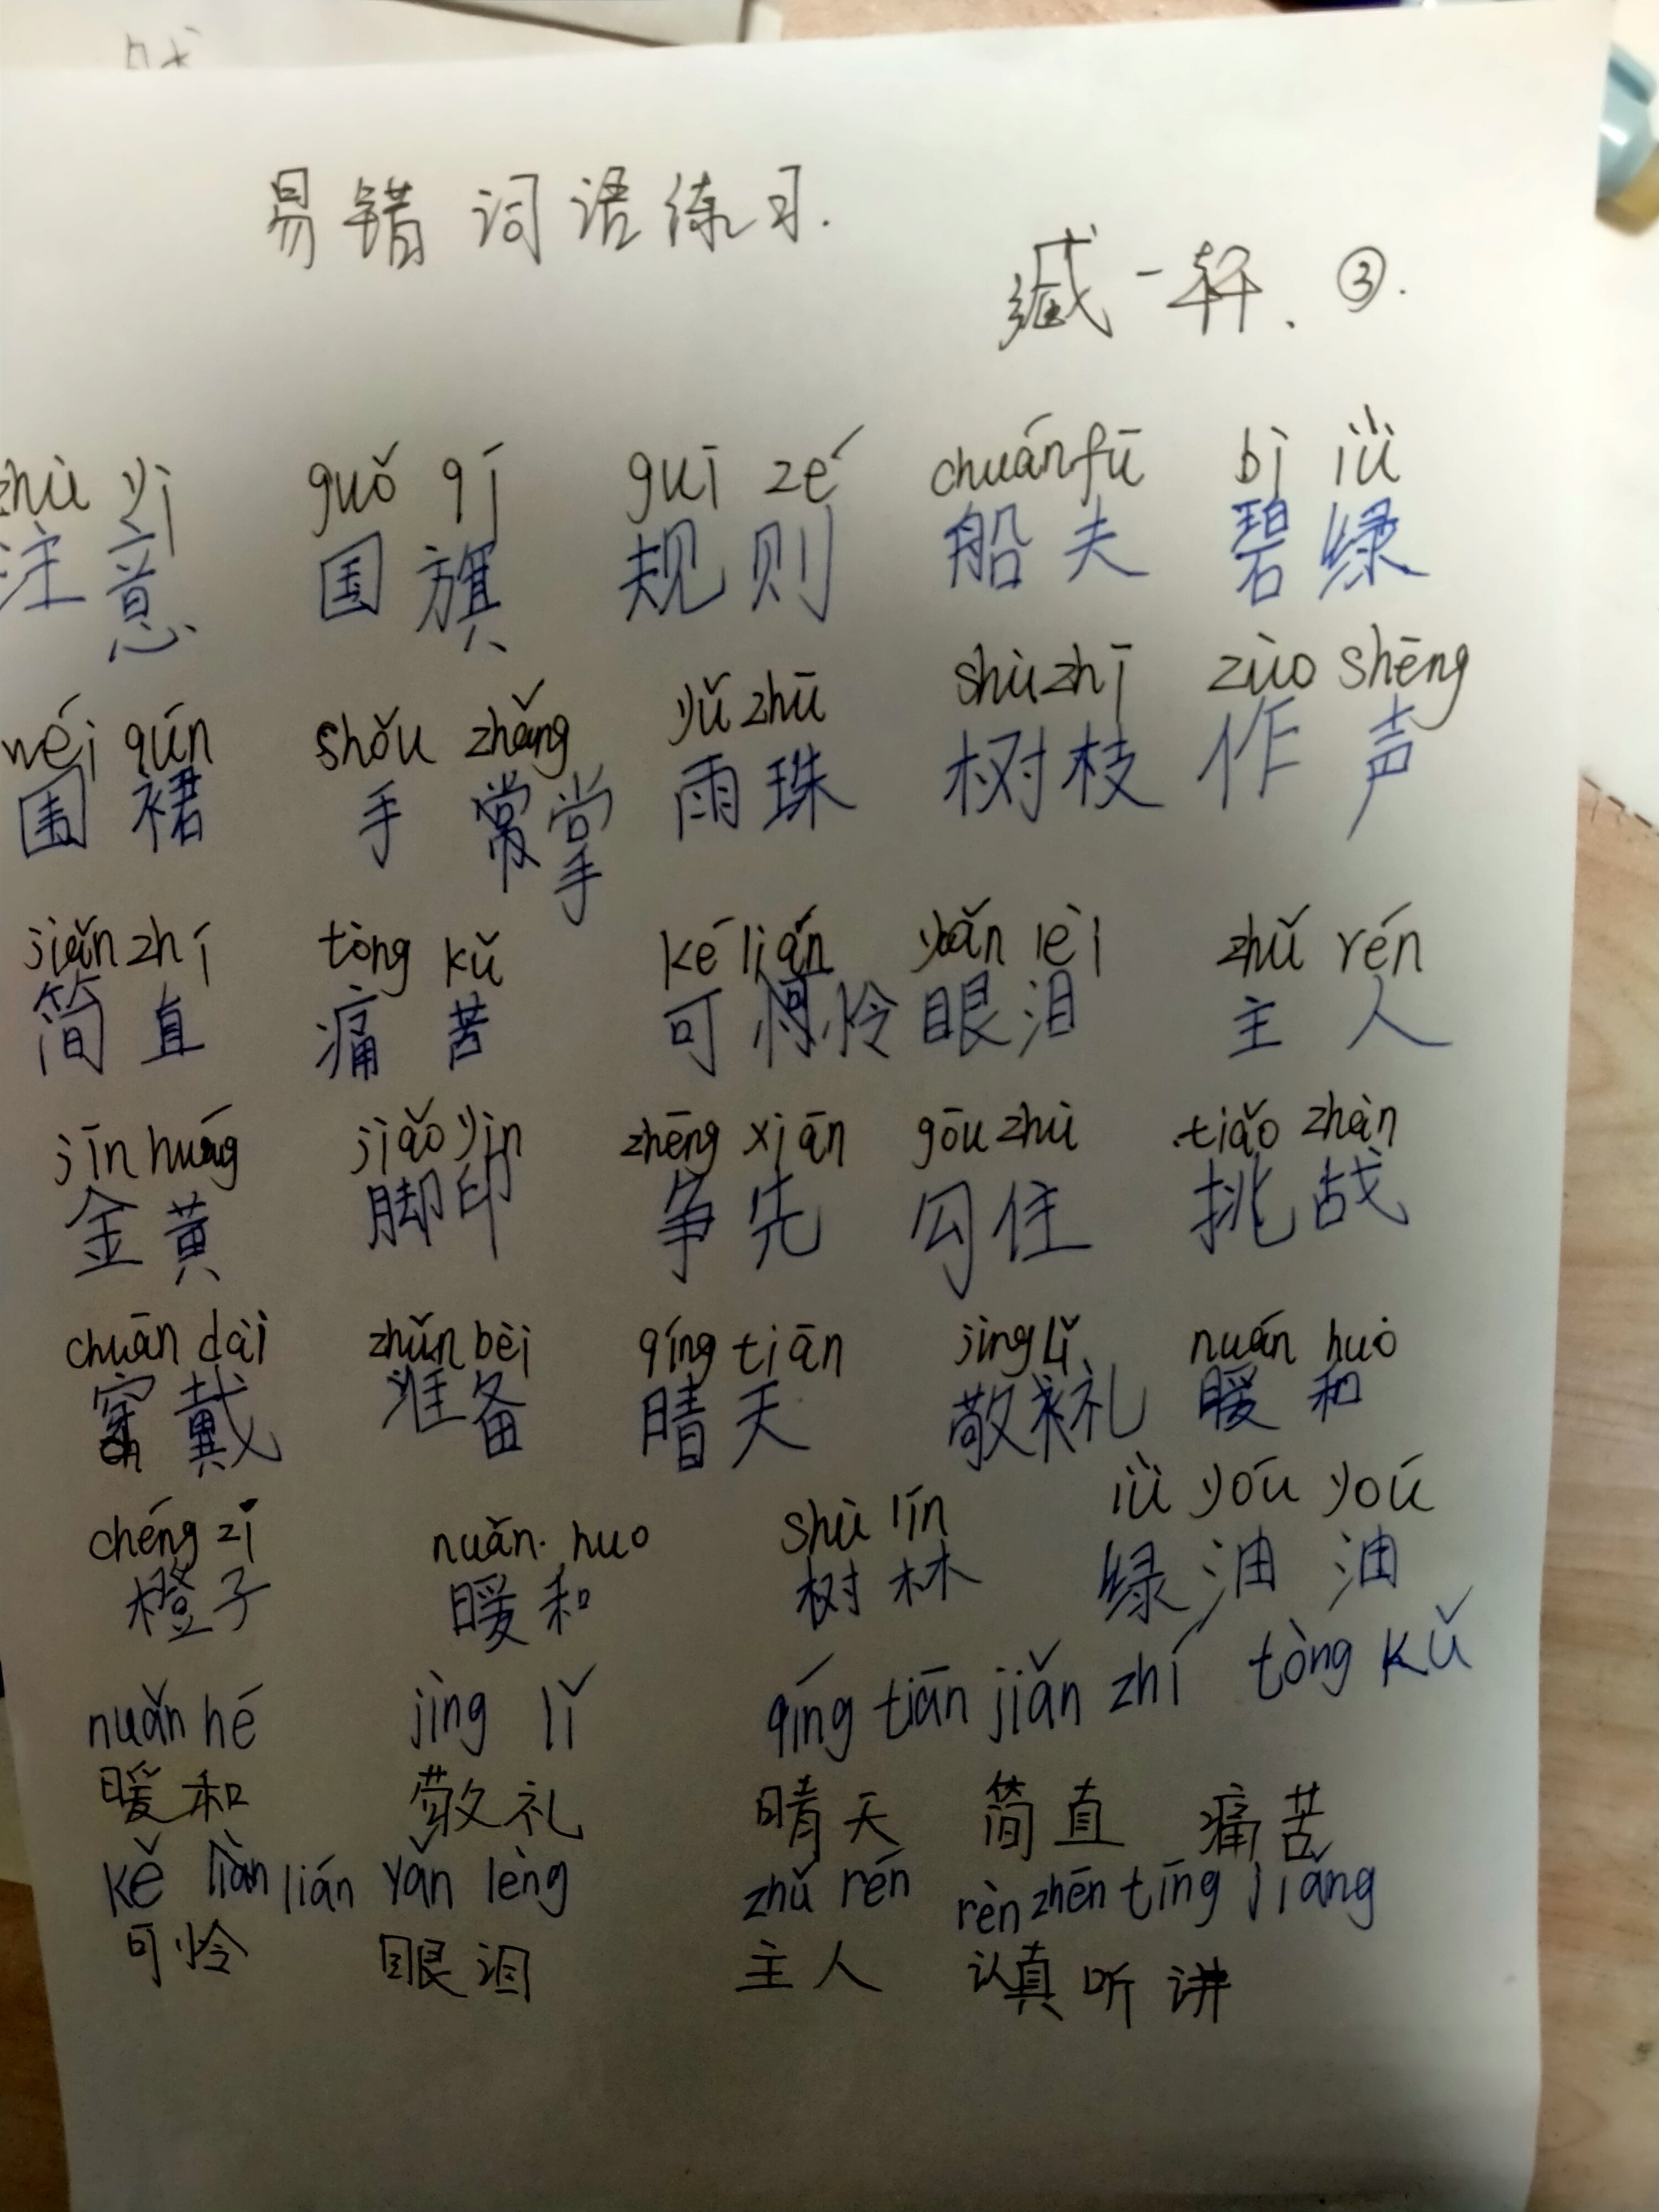 易错词语练习.
臧一轩、③.
zhù yì guǒ qí guī zé chuánfū bì lǜ
注意 国旗 规则 船夫 碧绿
wéi qún shǒu zhǎng yǔ zhū shù zhī zuò shēng
围裙 手掌 雨珠 树枝 作声
jiǎn zhí tòng kǔ ké lián yǎn lèi zhǔ rén
简直 痛苦 可怜 眼泪 主人
jīn huáng jiǎo yìn zhēng xiān gōu zhù tiǎo zhàn
金黄 脚印 争先 勾住 挑战
chuān dài zhǔn bèi qíng tiān jìng lǐ nuán huò
穿戴 准备 晴天 敬礼 暖和
chéng zi nuǎn huo shù lín lǜ yóu yóu
橙子 暖和 树林 绿油油
nuǎn hé jìng lǐ qíng tiān jiǎn zhí tòng kǔ
暖和 敬礼 晴天 简直 痛苦
kě lián yǎn lèng zhǔ rén rèn zhēn tīng jiǎng
可怜 眼泪 主人 认真听讲